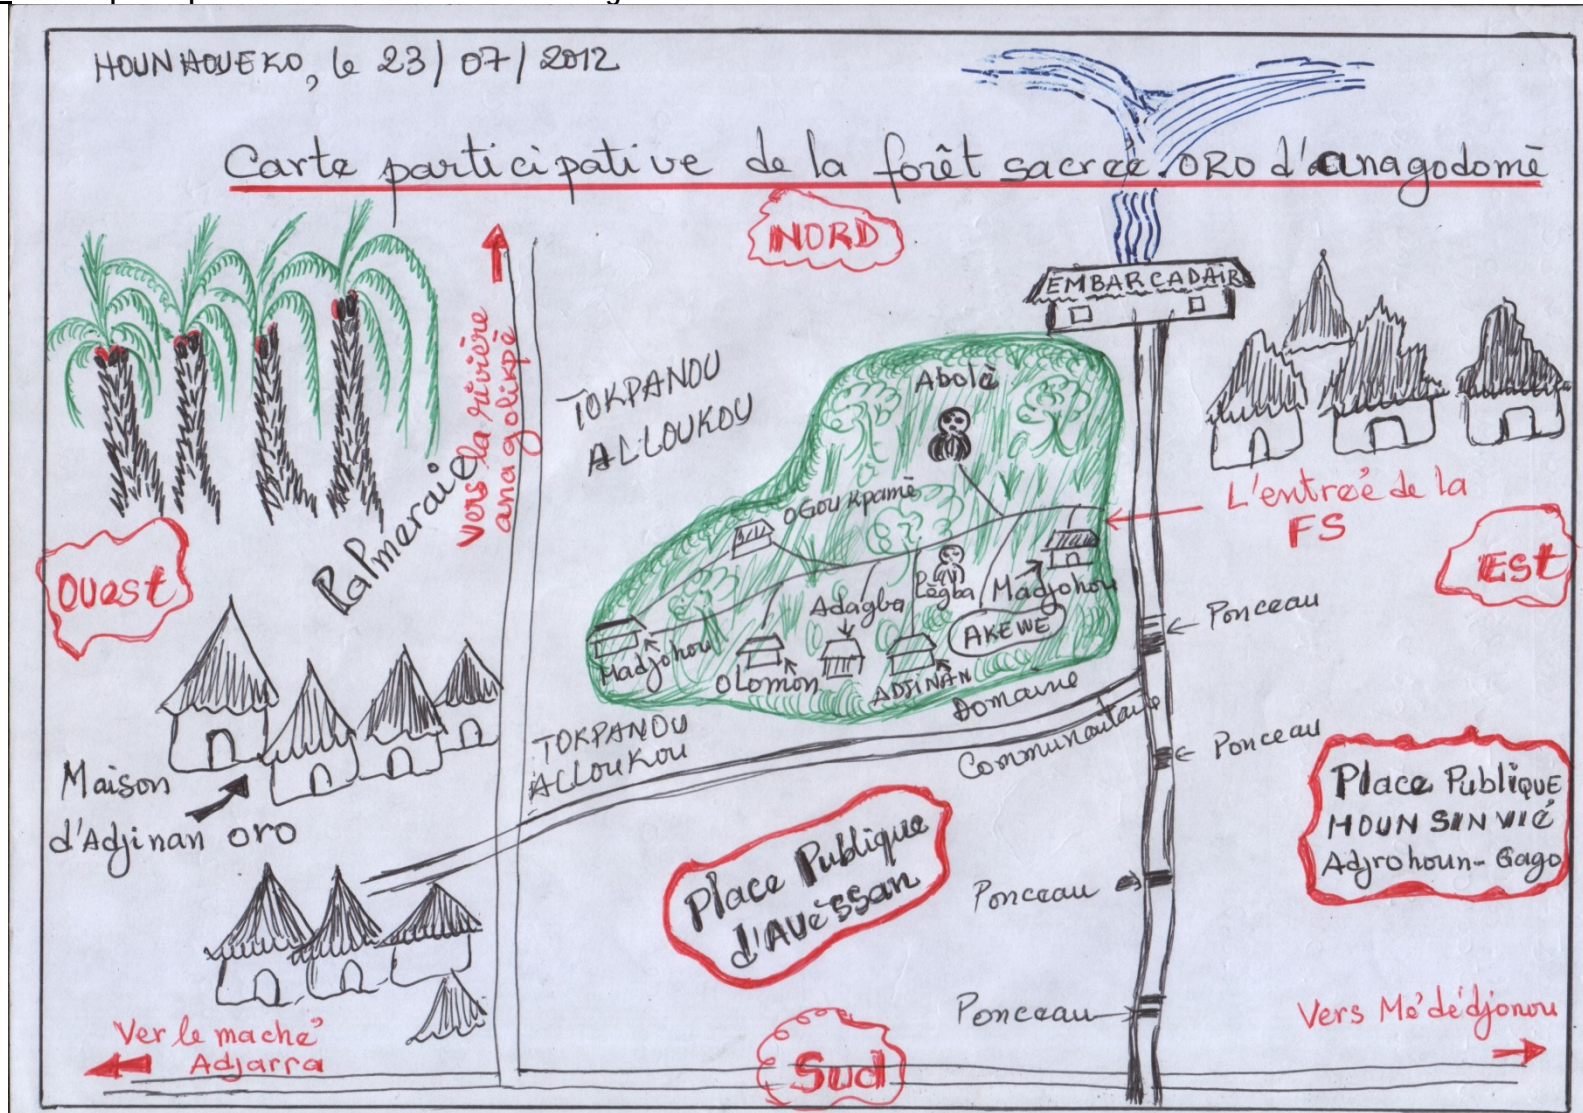 HOUNHOUEKO, le 23/07/2012
Carte participative de la forêt sacrée ORO d'anagodomè
NORD
EMBARCADAIR
vers la rivière
anagolikpè
TOKPANOU
ALLOUKOU
Abolè
Palmeraie
L'entreé de la
FS
OGOUKpamè
Ouest
EST
Lègba
Madjohou
Adagba
AKEWE
Madjohou
OLomon
ADJINAN
Ponceau
Domaine
Communautaire
TOKPANOU
ALLOUKOU
Ponceau
Maison
d'Adjinan oro
Place Publique
HOUNSINVIÉ
Adjrohoun-Gago
Place Publique
d'Avèssan
Ponceau
Ponceau
Ver le maché
Adjarra
Vers Mé'dé'djonou
Sud